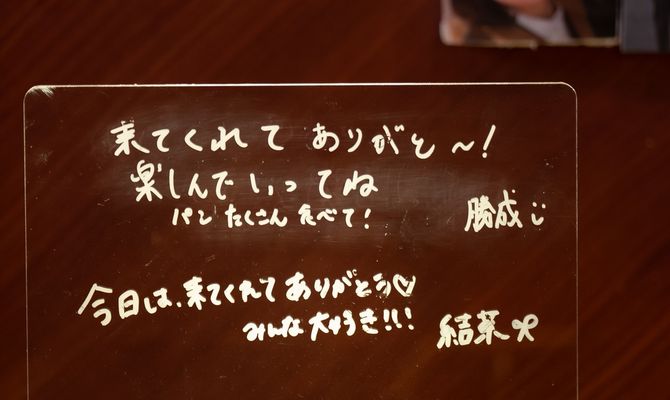 来てくれて ありがと〜!
楽しんでいってね
パン たくさん 食べて!
勝成
今日は、来てくれて ありがとう♡
みんな 大好き!!!
結菜